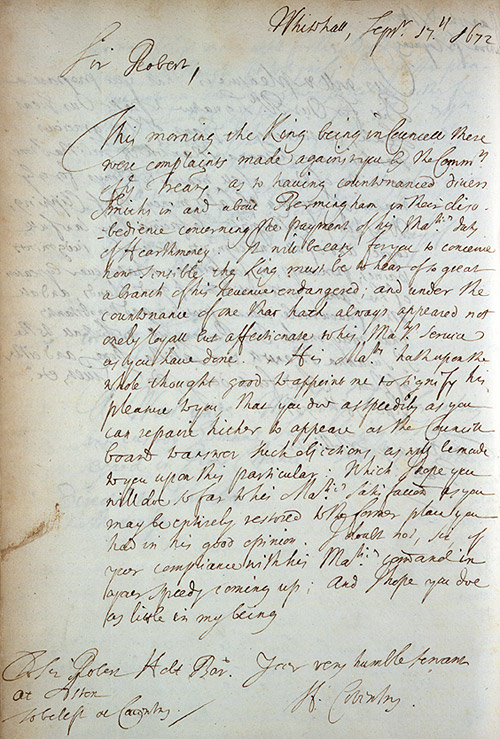 Whitehall, Septr. 17.th 1672
Sir Robert,
This morning the King being in Councell there
were complaints made against you by the Commrs
of Treary, as to having countenanced divers
Smiths in and about Bermingham in their diso-
-bedience concerning the payment of his Maties duty
of Hearthmoney. It will be easy for you to conceive
how sensible the King must be to hear of so great
a branch of his Revenue endangered, and under the
countenance of one that hath always appeared not
onely loyall but affectionate to his Maties Service
as you have done. His Matie hath upon the
whole thought good to appoint me to signify his
pleasure to you, that you doe as speedily as you
can repaire hither to appeare at the Councill
board to answer such objections, as will be made
to you upon this particular: Which I hope you
will doe so far to his Maties Satisfaccon as you
may be entirely restored to the former place you
had in his good opinion. I doubt not, Sir, of
your compliance with his Maties comand in
your speedy coming up; And I hope you doe
as little in my being
Your very humble servant
H. Coventry.
To Sr Robert Holt Bart.
at Aston
to be left at Coventry.